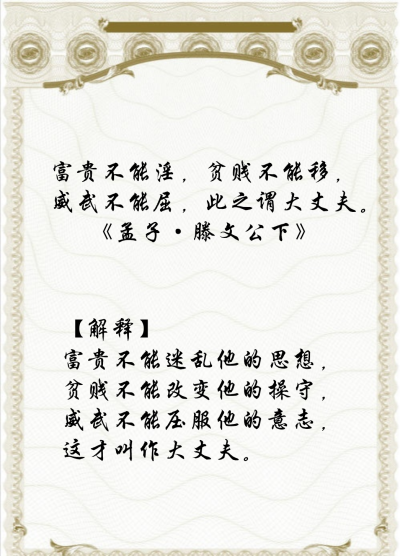 富贵不能淫，贫贱不能移，
威武不能屈，此之谓大丈夫。
《孟子·滕文公下》
【解释】
富贵不能迷乱他的思想，
贫贱不能改变他的操守，
威武不能压服他的意志，
这才叫作大丈夫。